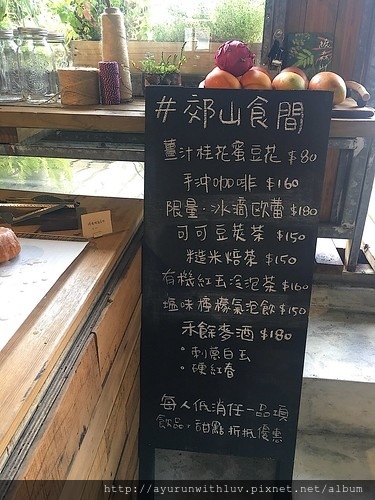 #郊山食間
薑汁桂花蜜豆花 $80
手沖咖啡 $160
限量·冰滴歐蕾 $180
可可豆莢茶 $150
糙米焙茶 $150
有機紅玉冷泡茶 $160
塩味檸檬氣泡飲 $150
禾餘麥酒 $180
·刺蔥白玉
·硬紅春
每人低消任一品項
飲品+甜點 折抵優惠
http://ayurunwithluv.pixnet.net/album